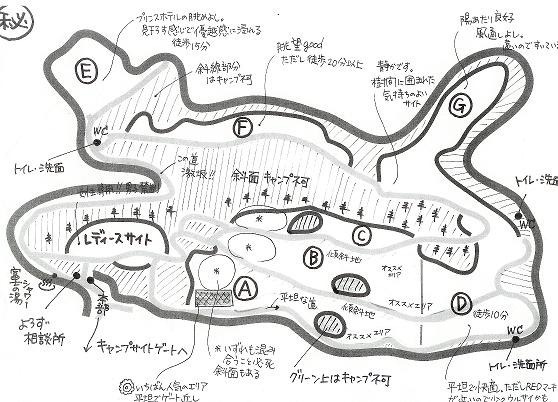 秘
プリンスホテルの眺めよし。
見下ろす感じで優越感に浸れる
徒歩15分
眺望good
ただし徒歩20分以上
陽あたり良好
風通しよし。
遠いのですいてい
静かです。
樹木に囲まれた
気持ちのよい
サイト
斜線部分
はキャンプ不可
E
F
G
WC
トイレ・洗面
この道
激坂!!
斜面 キャンプ不可
女性専用!!男子禁制
レディースサイト
C
B
A
D
傾斜地
傾斜地
オススメエリア
オススメエリア
オススメエリア
徒歩10分
WC
トイレ・洗面
WC
トイレ・洗面所
シャワー
富士の湯
よろず
相談所
本部
キャンプサイトゲートへ
平坦な道
※いずれも混み
合うこと必死
斜面もある
◎いちばん人気のエリア
平坦でゲート近し
グリーン上はキャンプ不可
平坦で快適。ただしREDマーキ
が近いのでリンクウルサイかも